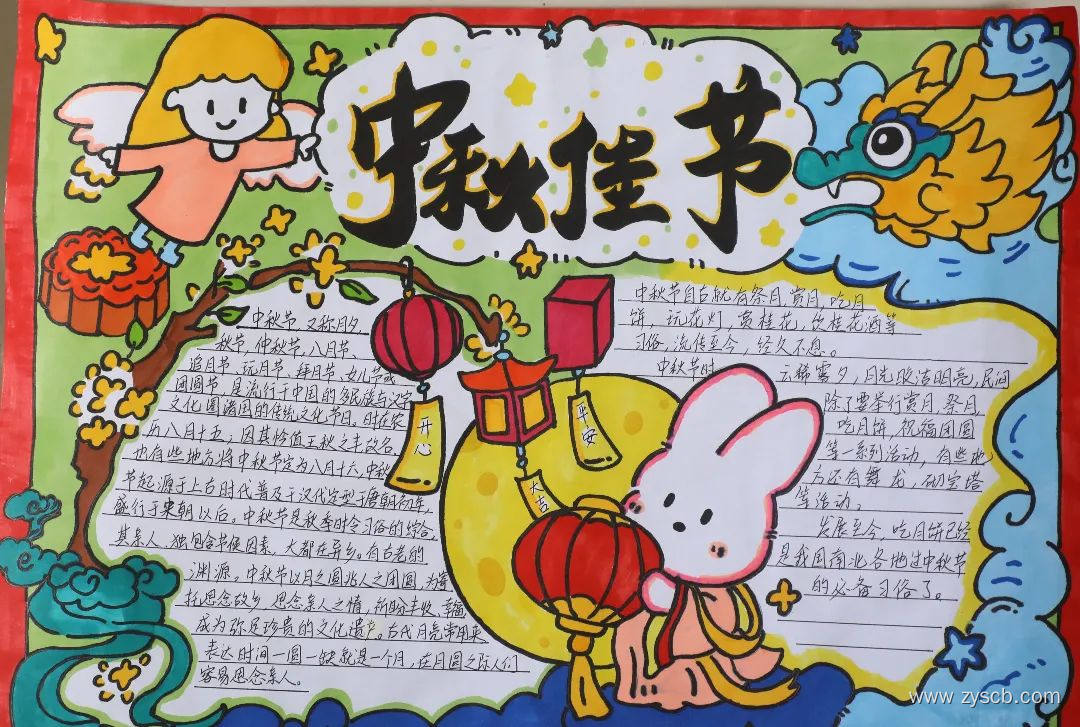 中秋佳节
中秋节,又称月夕、
秋节,仲秋节,八月节、
追月节、玩月节、拜月节、女儿节或
团圆节,是流行于中国的多民族与汉字
文化圈诸国的传统文化节日。时在农
历八月十五;因其恰值三秋之半故名,
也有些地方将中秋节定为八月十六,中秋
节起源于上古时代,普及于汉代,定型于唐朝初年,
盛行于宋朝以后。中秋节是秋季时令习俗的综合,
其
节俗因素,大都
有古老的
渊源。中秋节以月之圆兆人之团圆,为寄
托思念故乡,思念亲人之情,祈盼丰收、幸福,
成为弥足珍贵的文化遗产。古代月亮常用来
表达时间一圆一缺就是一个月,在月圆之际人们
容易思念亲人。
开心
大吉
平安
中秋节自古就有祭月,赏月,吃月
饼 玩花灯,赏桂花,饮桂花酒等
习俗,流传至今,经久不息。
中秋节时 云稀雾少,月光皎洁明亮,民间
除了要举行赏月,祭月,
吃月饼,祝福团圆
等一系列活动,有些地
方还有舞 龙,砌宝塔
等活动。
发展至今,吃月饼已经
是我国南北各地过中秋节
的必备习俗了。
www.zyscb.com